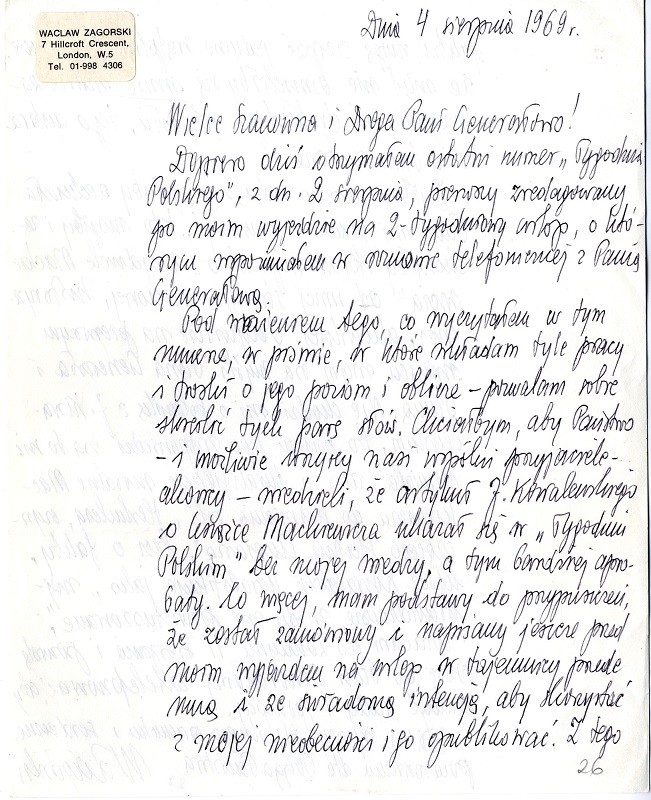 WACLAW ZAGORSKI
7 Hillcroft Crescent,
London, W.5
Tel. 01-998 4306
Dnia 4 sierpnia 1969 r.
Wielce Szanowna i Droga Pani Generałowo!
Dopiero dziś otrzymałem ostatni numer „Tygodnia
Polskiego", z dn. 2 sierpnia, pierwszy zredagowany
po moim wyjeździe na 2-tygodniowy urlop, o któ-
rym wspomniałem w rozmowie telefonicznej z Panią
Generałową.
Pod wrażeniem tego, co wyczytałem w tym
numerze, w piśmie, w które wkładam tyle pracy
i troski o jego poziom i oblicze – pozwalam sobie
skreślić tych parę słów. Chciałbym, aby Państwo
– i możliwie wszyscy nasi wspólni przyjaciele-
akowcy – wiedzieli, że artykuł J. Kowalewskiego
o książce Mackiewicza ukazał się w „Tygodniu
Polskim" bez mojej wiedzy, a tym bardziej apro-
baty. Co więcej, mam podstawy do przypuszczeń,
że został zamówiony i napisany jeszcze przed
moim wyjazdem na urlop w tajemnicy przede
mną i ze świadomą intencją, aby skorzystać
z mojej nieobecności i go opublikować. Z tego
26